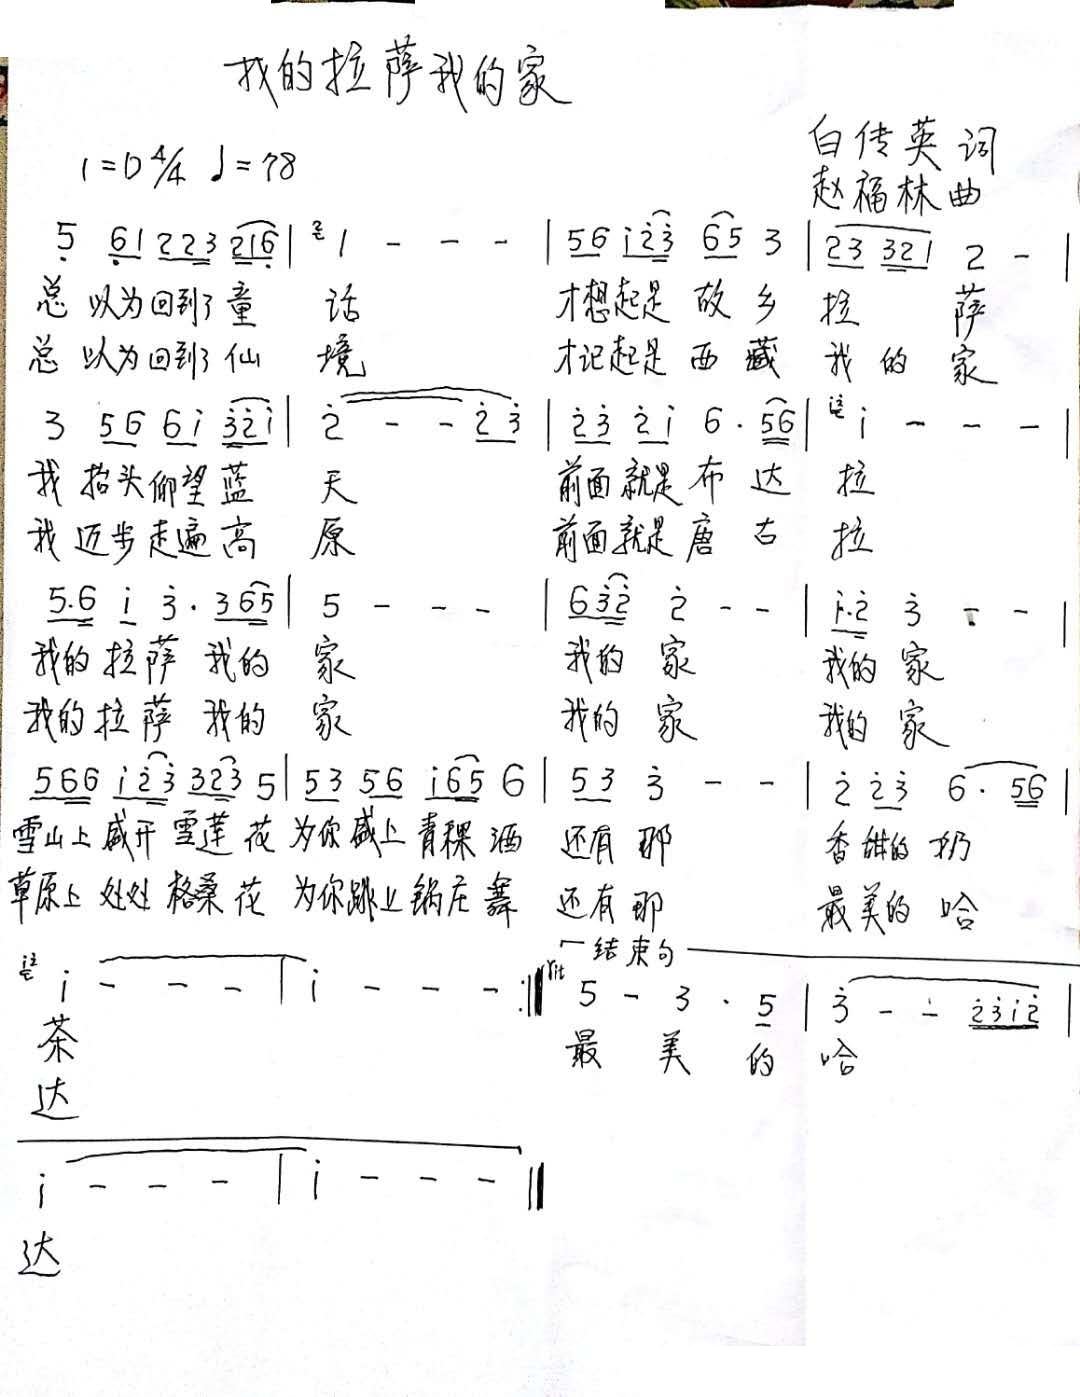 我的拉萨我的家
1=D 4/4 ♩=78
白传英 词
赵福林 曲
5 61 223 216 | 1 - - - | 56 i23 65 3 | 23 321 2 - |
总 以为回到了童 话 才想起是 故乡 拉 萨
总 以为回到了仙 境 才记起是 西藏 我的 家
3 56 6i 32i | 2 - - 23 | 23 2i 6·56 | i - - - |
我 抬头仰望蓝 天 前面就是布达 拉
我 迈步走遍高 原 前面就是唐古 拉
5·6 i 3·365 | 5 - - - | 632 2 - - | i·2 3 - - |
我的拉萨 我的 家 我的 家 我的 家
我的拉萨 我的 家 我的 家 我的 家
566 i23 323 5 | 53 56 i65 6 | 53 3 - - | 2 23 6·56 |
雪山上盛开雪莲花 为你盛上青稞酒 还有那 香甜的奶
草原上处处格桑花 为你跳上锅庄舞 还有那 最美的哈
rit 结束句
i - - - | i - - - :‖ 5 - 3·5 | 3 - - 23i2 |
茶 最 美 的 哈
达
i - - - | i - - - ‖
达